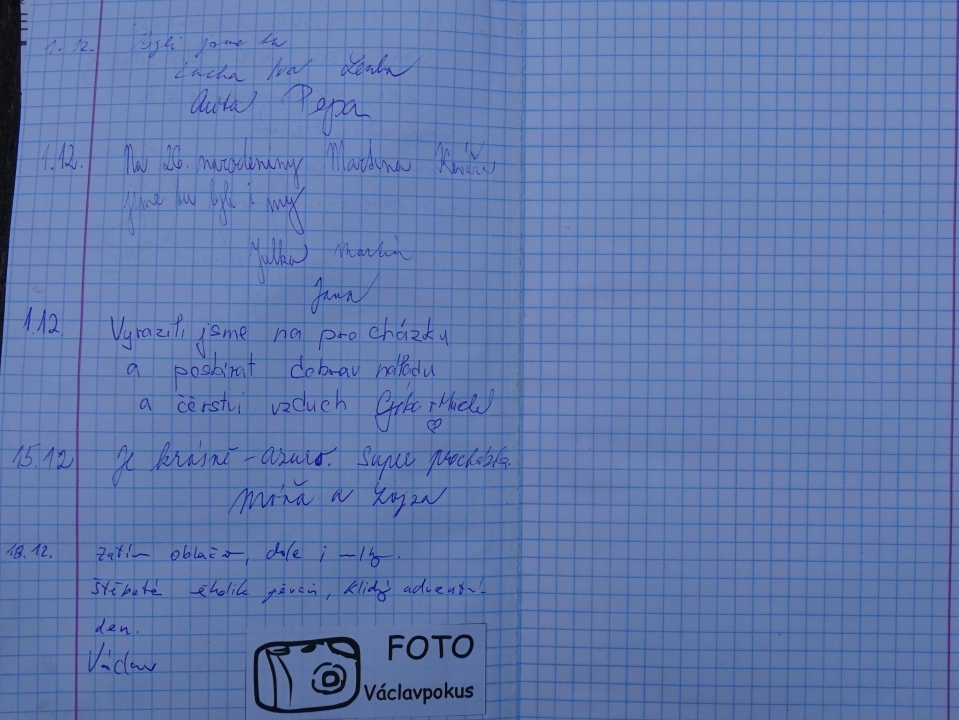 1.12. Byli jsme tu
Iva Lenka
Anita Pepa
1.12. Na 26. narozeniny Martina
jsme tu byli i my
Julka Martin
Jana
1.12. Vyrazili jsme na procházku
a posbírat dobrou náladu
a čerství vzduch
15.12 Je krásně - azuro. Super procházka.
Móňa a Lojza
18.12. Zatím oblačno, dole i mlhy.
několik pěvců, klidný adventní
den.
Václav
FOTO
Václavpokus